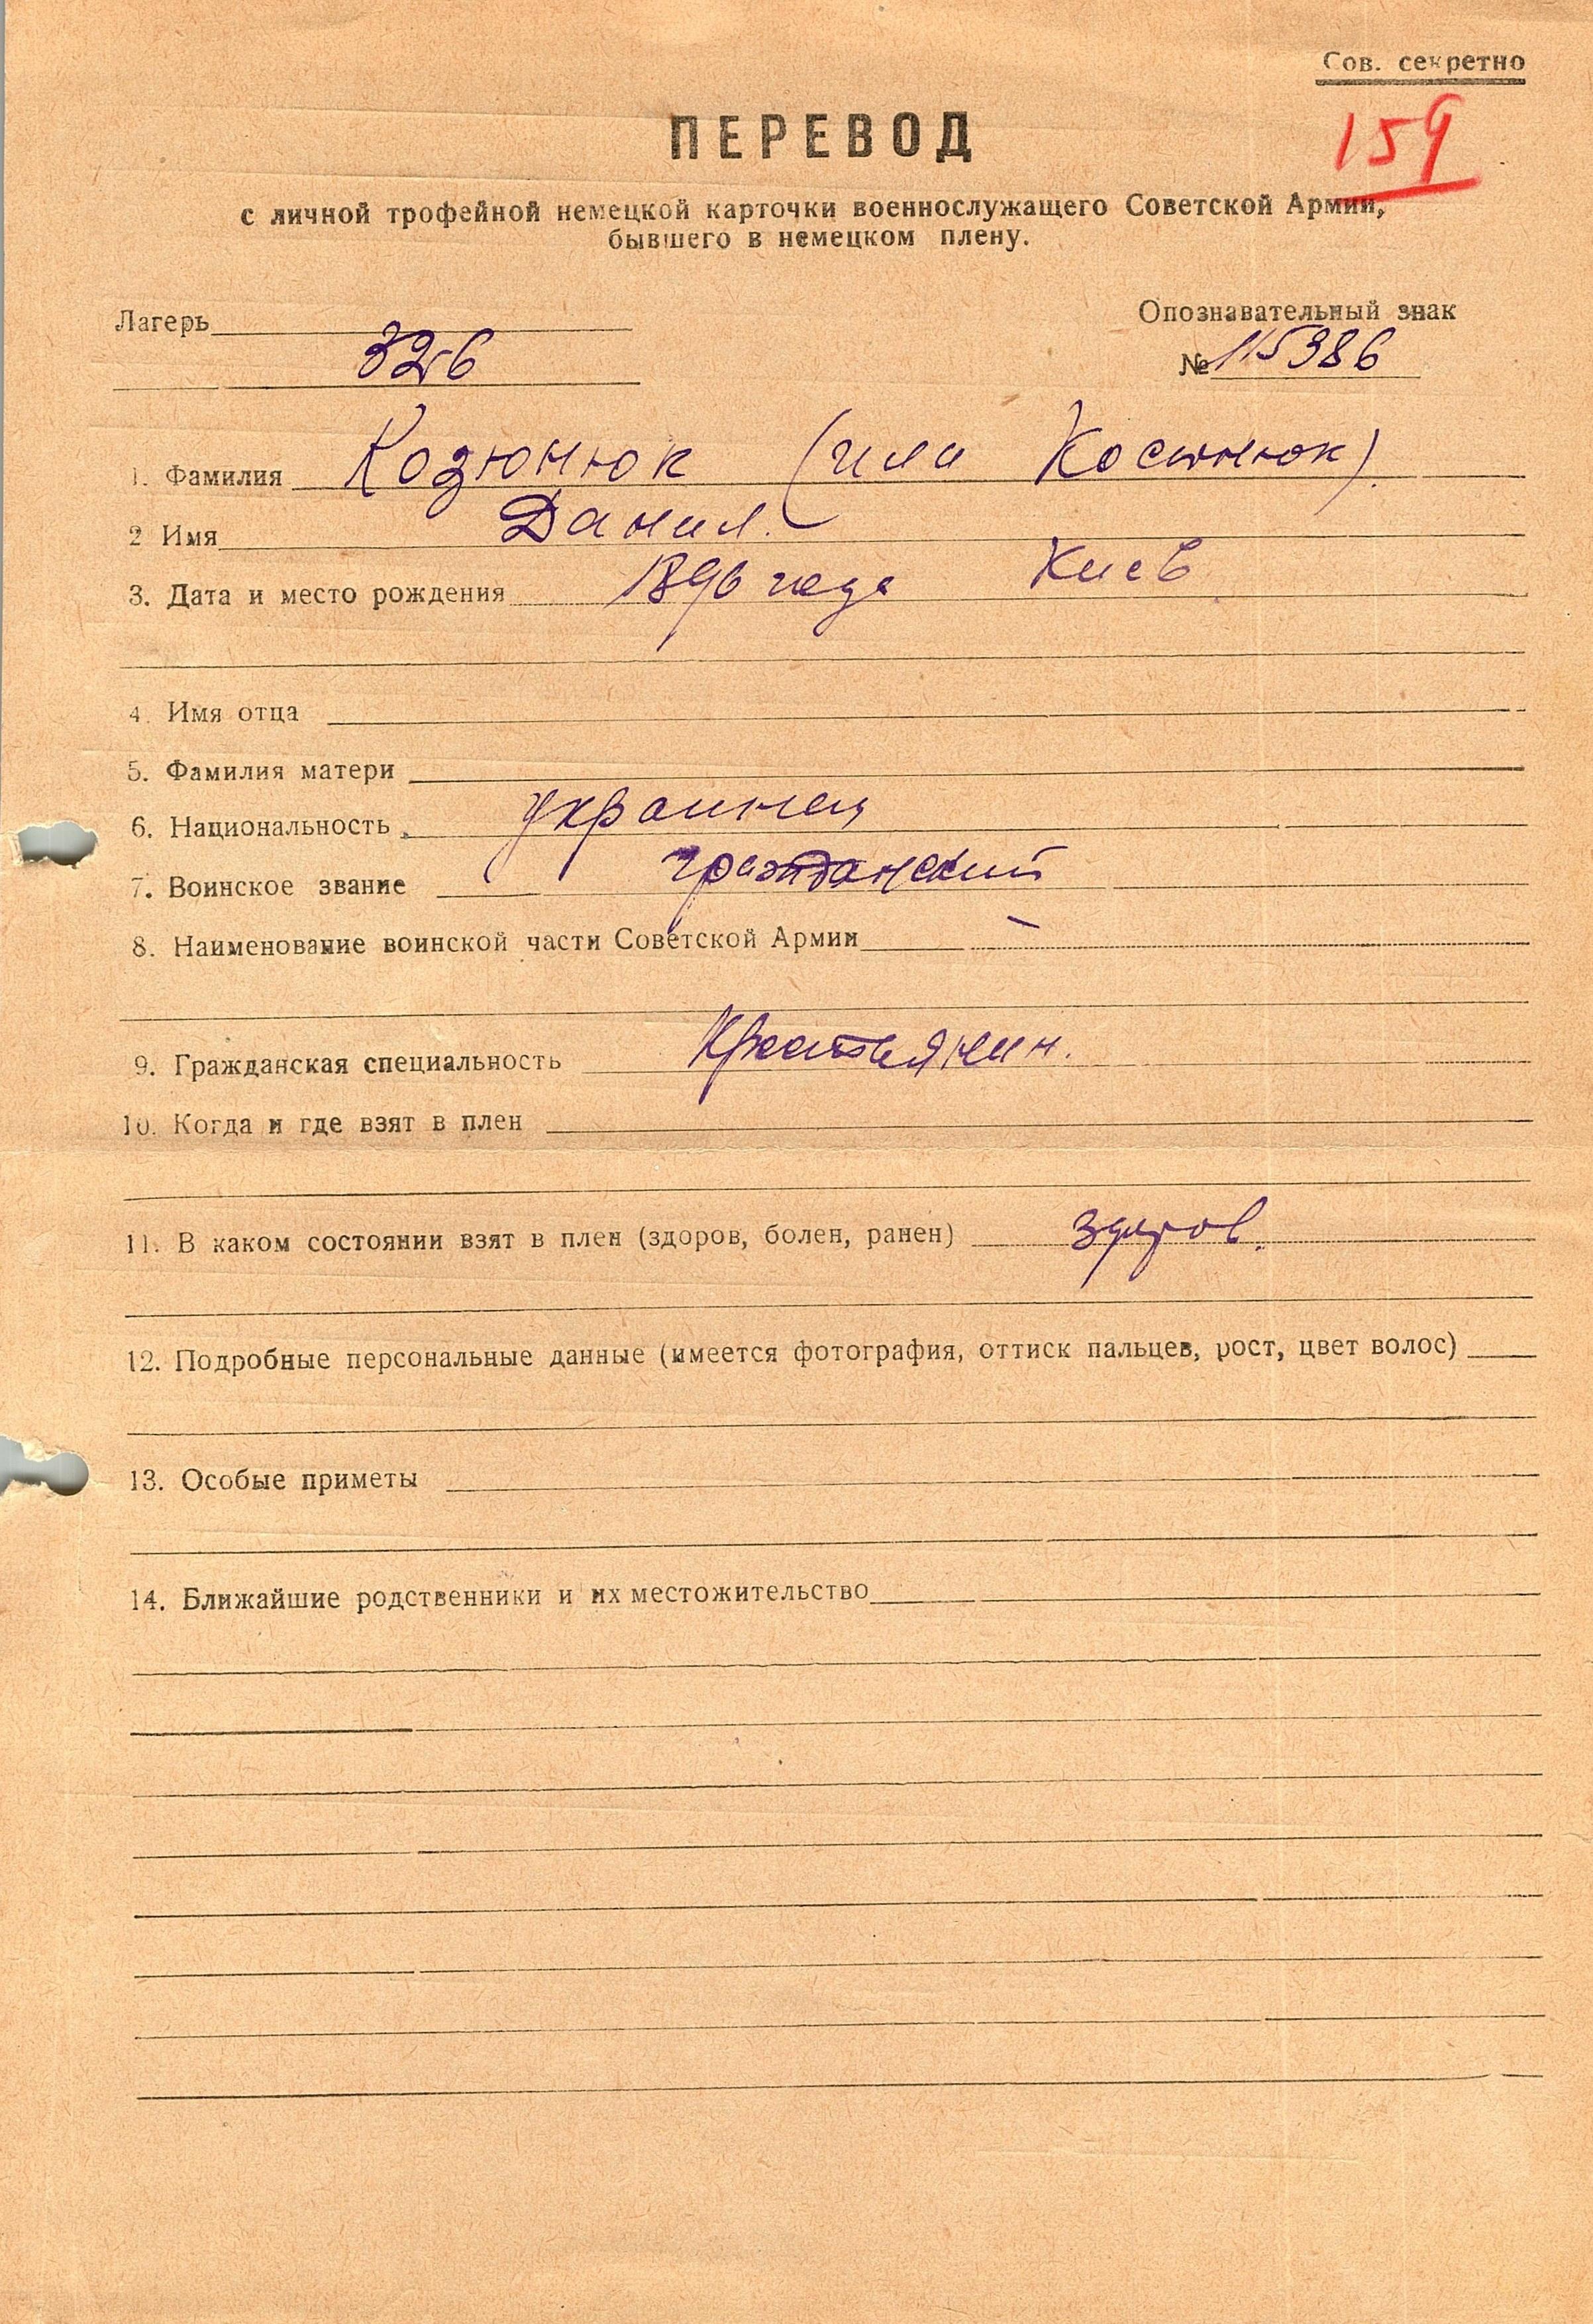 Сов. секретно
159
ПЕРЕВОД
с личной трофейной немецкой карточки военнослужащего Советской Армии,
бывшего в немецком плену.
Лагерь
326
Опознавательный знак
№ 115386
1. Фамилия Козюнюк (или Костюнюк).
2 Имя Данил.
3. Дата и место рождения 1896 года Киев
4. Имя отца
5. Фамилия матери
6. Национальность украинец
7. Воинское звание гражданский
8. Наименование воинской части Советской Армии —
9. Гражданская специальность Крестьянин.
10. Когда и где взят в плен
11. В каком состоянии взят в плен (здоров, болен, ранен) здоров.
12. Подробные персональные данные (имеется фотография, оттиск пальцев, рост, цвет волос)
13. Особые приметы
14. Ближайшие родственники и их местожительство